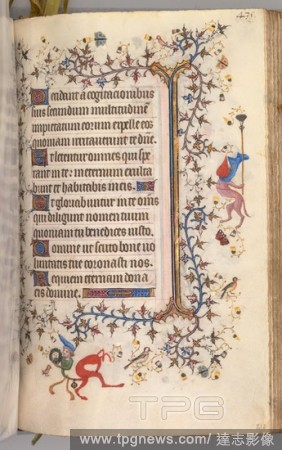 471
Decidant a cogitacionibus
suis secundum multitudinem
impietatum eorum expelle eos
quoniam irritaverunt te domine.
Et letentur omnes qui spe
rant in te: in eternum exulta
bunt et habitabis in eis.
Et gloriabuntur in te omnes
qui diligunt nomen tuum
quoniam tu benedices iusto.
Domine ut scuto bone vo
luntatis tue coronasti nos.
Requiem eternam dona
eis domine.
TPG
www.tpgnews.com / 達志影像